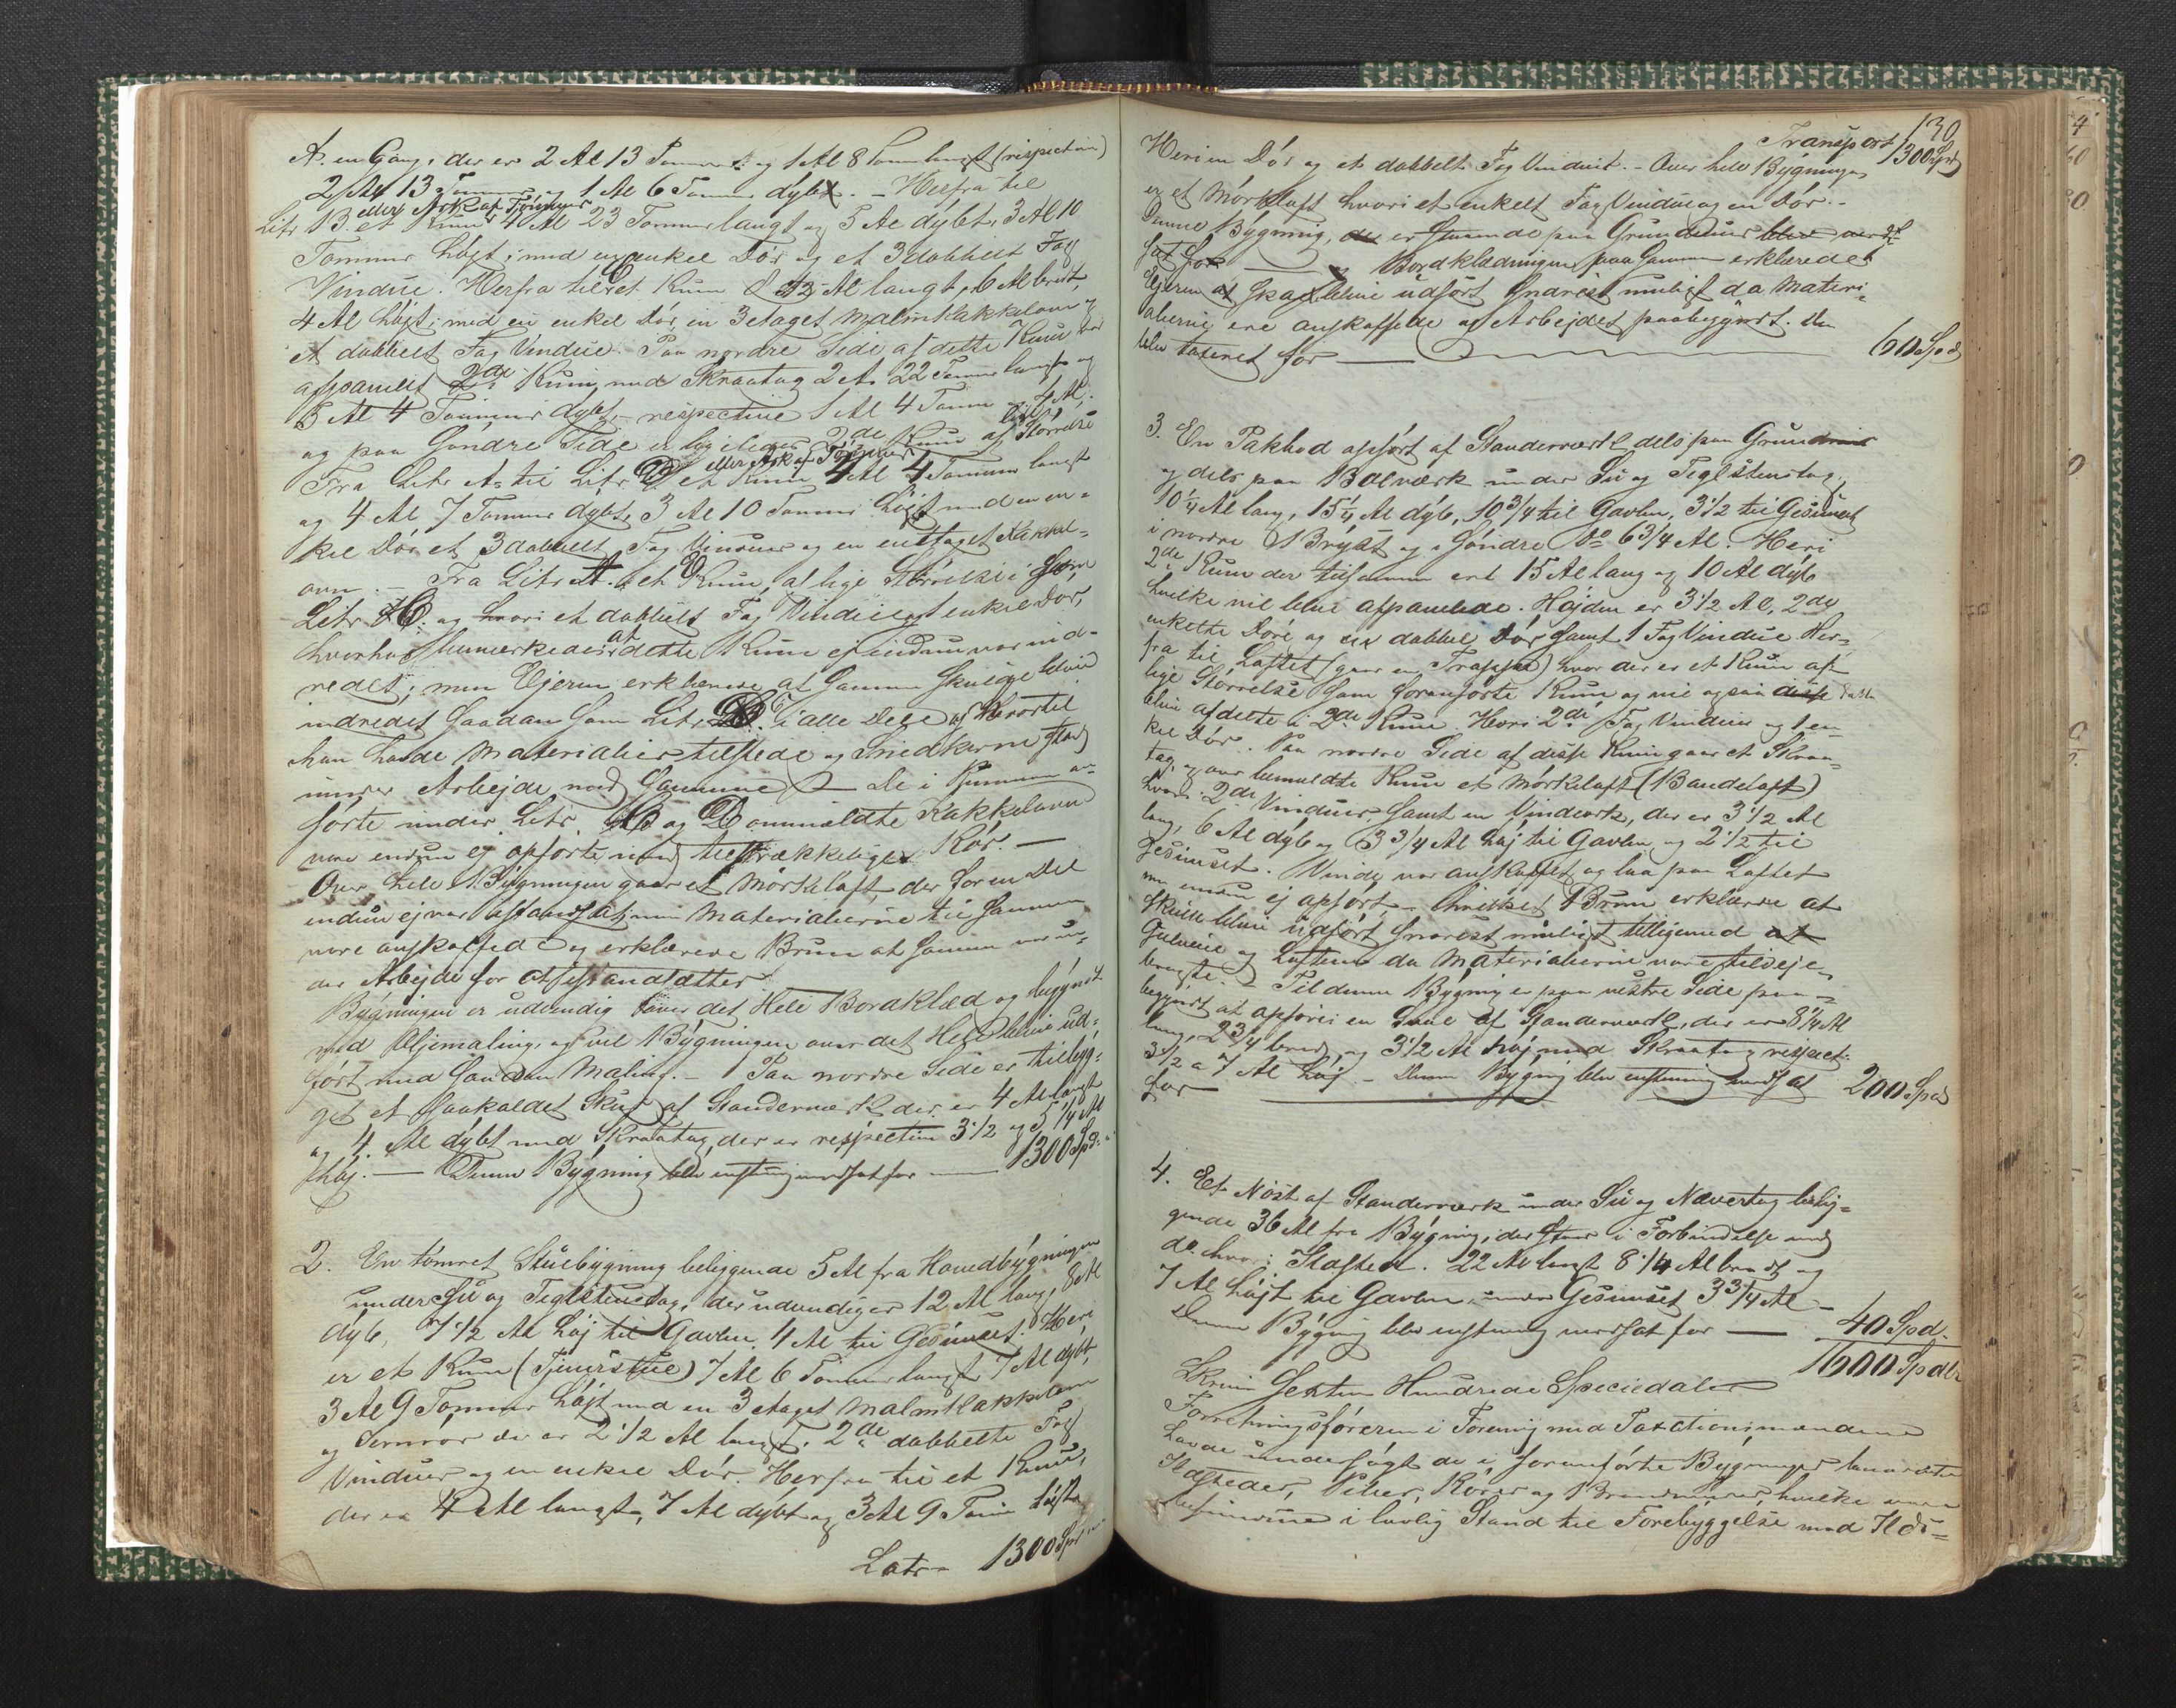 A. en Gang, der er 2 Al 13 Tommer og 1 Al 8 Tomm langt (respective)
2 Al 13 Tommer og 1 Al 6 Tomm dybt. - Herfra til
eller Ark af Tømmer
Litr B. et Rum 4 Al 23 Tommer langt og 5 Al dybt, 3 Al 10
Tommer højt; med en enkel Dør og et 3 dobbelt Fag
Vindue. Herfra til et Rum 12 Al langt, 6 Al bredt,
4 Al højt; med en enkel Dør, en 3 etages Malmkakkelovn og
et dobbelt Fag Vindue. Paa nordre Side af dette Rum er
afpanelet 2de Rum, med Skraatag 2 Al 22 Tommer langt og
5 Al 4 Tommer dybt, respective 1 Al 4 Tomm og 4 Al;
og paa Søndre Side er ligeledes 2de Rum af lige Størrelse
eller Ark af Tømmer
Fra Litr A. til Litr D et Rum 4 Al 4 Tommer langt
og 4 Al 7 Tommer dybt, 3 Al 10 Tommer højt med en en-
kel Dør, et 3 dobbelt Fag Vinduer og en enetages Kakkel-
ovn. - Fra Litr A. et Rum, af lige Størrelse som
Litr B. og hvori et dobbelt Fag Vindue og 1 enkel Dør,
hvorhos bemærkedes at dette Rum ej endnu var ind-
redet; men Ejeren erklærede at Samme skulde blive
indredet saadan som Litr B. i alle Dele og hvortil
han havde Materialier tilstede og Snedkerne stod
under Arbejde med Samme. De i Rummene an-
førte under Litr B og D ommeldte Kakkelovne
vare endnu ej opførte med tilstrækkelige Rør. -
Over hele Bygningen gaar et Mørkeloft, der for en Del
endnu ej var istandsat, men Materialierne til Samme
vare anskaffede og erklærede Bruun at Samme var un-
der Arbejde for at istandsættes
Bygningen er udvendig over det Hele Bordklæd og begyndt
med Oljemaling, og vil Bygningen over det Hele blive ud-
ført med saadan Maling. - Paa nordre Side er tilbyg-
get et saakaldet Skur af Standerværk der er 4 Al langt
og 4 Al dybt med Skraatag, der er respective 3 1/2 og 5 1/4 Al
høj. - Denne Bygning blev enstemmig ansat for - 1300 Spd.
2. En tømret Stuebygning beliggende 5 Al fra Hovedbygningen
under Su og Teglstenstag, der udvendig er 12 Al lang, 8 Al
dyb, 7 1/2 Al høj til Gavlen, 4 Al til Gesimset. Heri
er et Rum (Tjenerstue) 7 Al 6 Tommer langt, 7 Al dybt,
3 Al 9 Tommer højt med en 3 etages Malmkakkelovn
og der er 2 1/2 Al langt. 2de dobbelte Fag
Vinduer og en enkel Dør. Herfra til et Rum,
der er 4 Al langt, 7 Al dybt og 3 Al 9 Tomm højt
Latr 1300 Spd
130
Transport 1300 Spd
Heri en Dør og et dobbelt Fag Vindue. - Over hele Bygningen
er et Mørkloft hvori et enkelt Fag Vindue og en Dør. -
Denne Bygning, er staaende paa Grundmur blev værd-
sat for - Bordklædningen paa Samme erklærede
Ejeren skal blive udført snarest muligt da Materi-
alierne ere anskaffede og Arbejdet paabegyndt. Den
blev taxeret for - 60 Spd
3. En Pakbod opført af Standerværk dels paa Grundmur
og dels paa Bolværk under Su og Teglstenstag,
10 1/4 Al lang, 15 1/4 Al dyb, 10 3/4 til Gavlen, 3 1/2 til Gesimset
i nordre Bryst og i Søndre Do 6 3/4 Al. Heri
2de Rum der tilsammen ere 15 Al lang og 10 Al dyb
hvilke vil blive afpanelede. Højden er 3 1/2 Al, 2de
enkelte Døre og en dobbel Dør samt 1 Fag Vindue. Her-
fra til Loftet (gaar en Trappe) hvor der er et Rum af
lige Størrelse som foranførte Rum og vil ogsaa disse
blive afdelte i 2de Rum. Heri 2de Fag Vinduer og 1 en-
kel Dør. Paa nordre Side af disse Rum gaar et Skraa-
tag, og over bemeldte Rum et Mørkeloft (Bandeloft)
hvori 2de Vinduer, samt en Vindeark, der er 3 1/2 Al
lang, 6 Al dyb og 3 3/4 Al høj til Gavlen og 2 1/2 til
Gesimset. Vinde var anskaffet og laa paa Loftet
men endnu ej opført - hvilket Bruun erklærede at
skulle blive udført snarest muligt tilligemed
Gulvene og Loftene da Materialierne vare tilveje-
bragte. - Til denne Bygning er paa vestre Side paa-
begyndt at opføre en Sval af Standerværk, der er 8 1/4 Al
lang, 2 3/4 bred, og 3 1/2 Al høj med Skraatag respect.
3 1/2 a 7 Al høj. - Denne Bygning blev enstemmig ansat
for - 200 Spd
4. Et Nøst af Standerværk under Su og Nævertag belig-
gende 36 Al fra Bygning, der staar i Forbindelse med
do. hvori Ildsted. 22 Al langt 8 1/4 Al bredt og
7 Al højt til Gavlen, under Gesimset 3 3/4 Al -
Denne Bygning blev enstemmig ansat for - 40 Spd.
1600 Spdlr
Skriver Sexten Hundrede Speciedaler
Forretningsføreren i Forening med Taxationsmændene
havde undersøgt de i foranførte Bygninger
Ildsteder, Piber, Rører og Brandmure, hvilke vare
befundne i lovlig Stand til Forebyggelse mod Ilds-